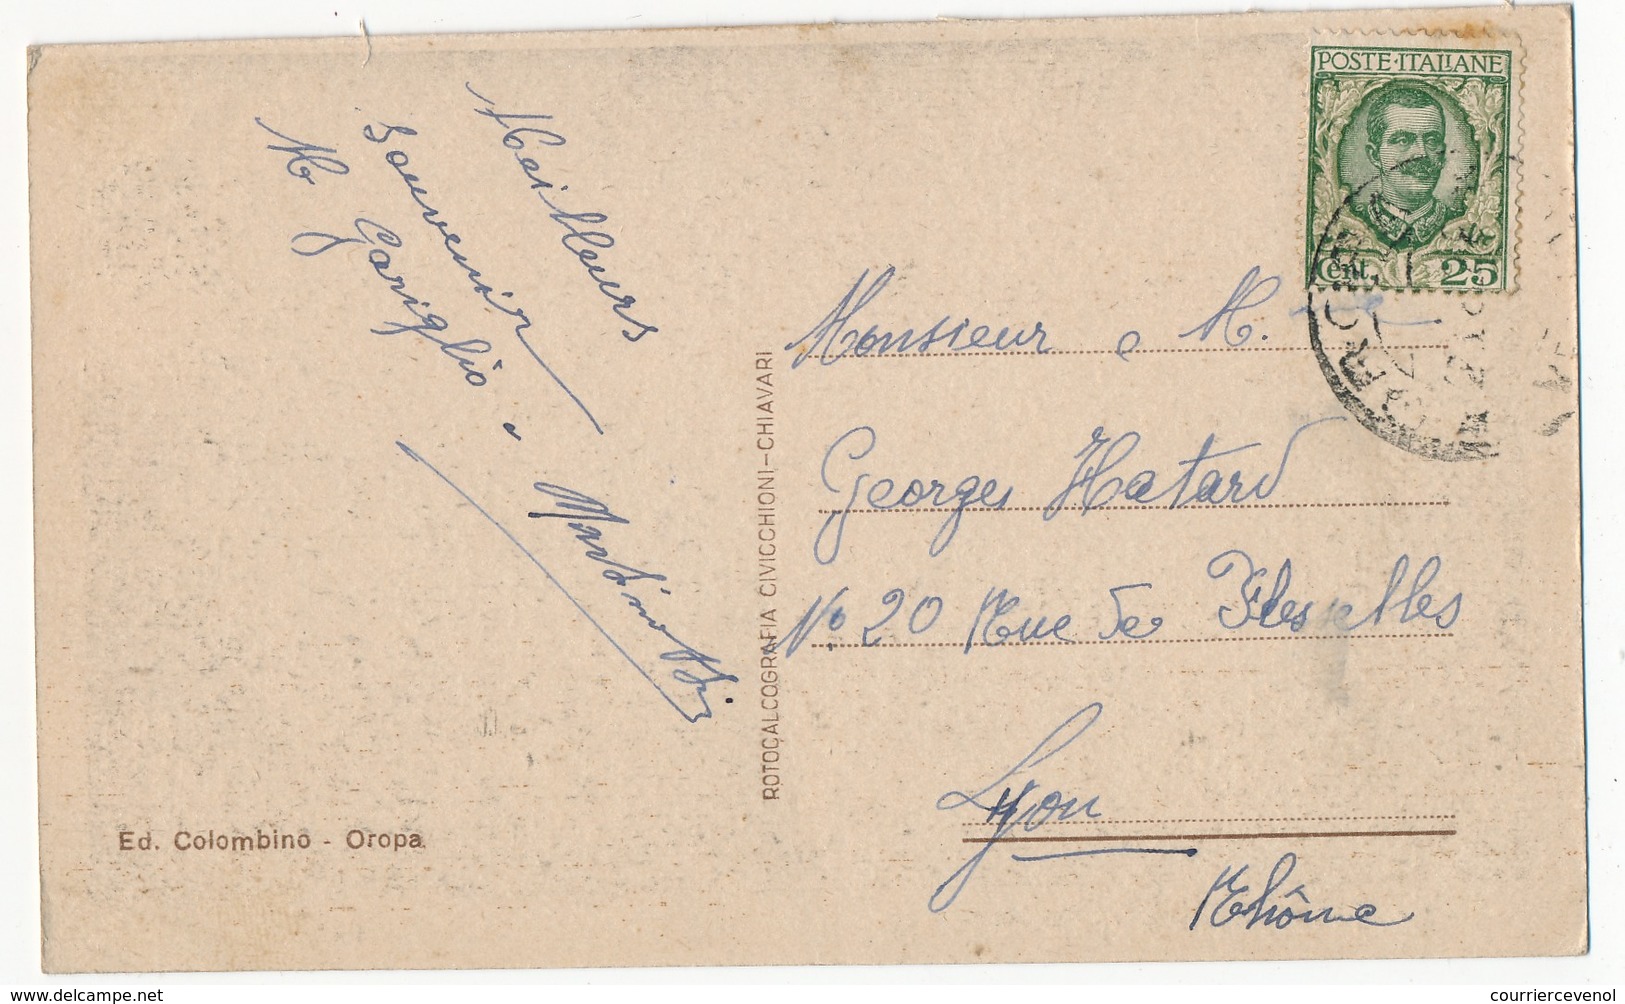 POSTE·ITALIANE
Cent. 25
Meilleurs
Souvenir
M Gariglio e
Martinotti
Monsieur e M.
Georges Hatard
No 20 Rue De Flesselles
Lyon
Rhône
ROTOCALCOGRAFIA CIVICCHIONI-CHIAVARI
Ed. Colombino - Oropa
www.delcampe.net
courriercevenol